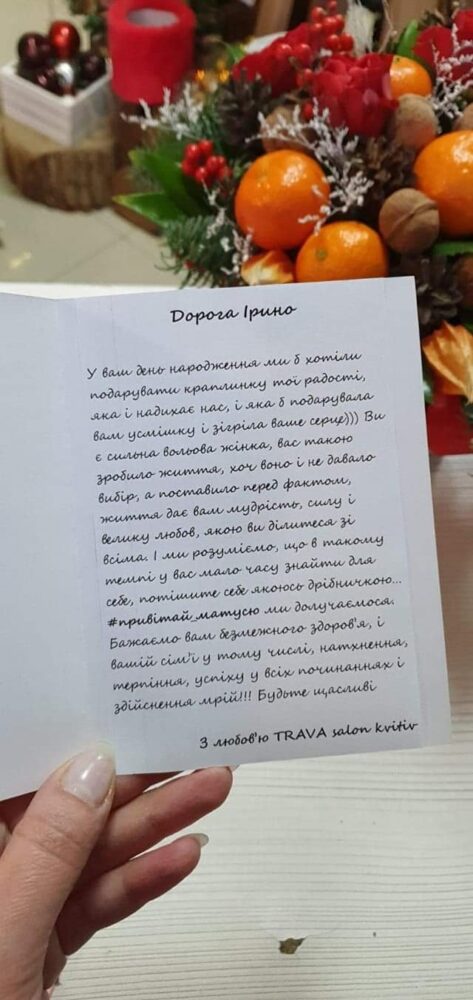 Дорога Ірино
У ваш день народження ми б хотіли
подарувати краплинку тої радості,
яка і надихає нас, і яка б подарувала
вам усмішку і зігріла ваше серце))) Ви
є сильна вольова жінка, вас такою
зробило життя, хоч воно і не давало
вибір, а поставило перед фактом,
життя дає вам мудрість, силу і
велику любов, якою ви ділитеся зі
всіма. І ми розуміємо, що в такому
темпі у вас мало часу знайти для
себе, потішите себе якоюсь дрібничкою...
#привітай_матусю ми долучаємося.
Бажаємо вам безмежного здоров'я, і
вашій сім'ї у тому числі, натхнення,
терпіння, успіху у всіх починаннях і
здійснення мрій!!! Будьте щасливі
З любов'ю TRAVA salon kvitiv